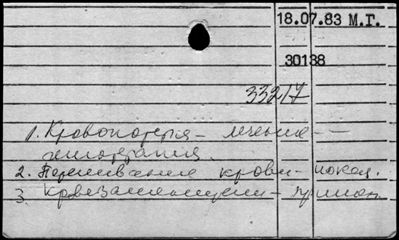 18.07.83 М.Г.
30138
33217
1. Кровопотеря – лечение –
гемотерапия.
2. Переливание крови – показ.
3. Кровезаменители –